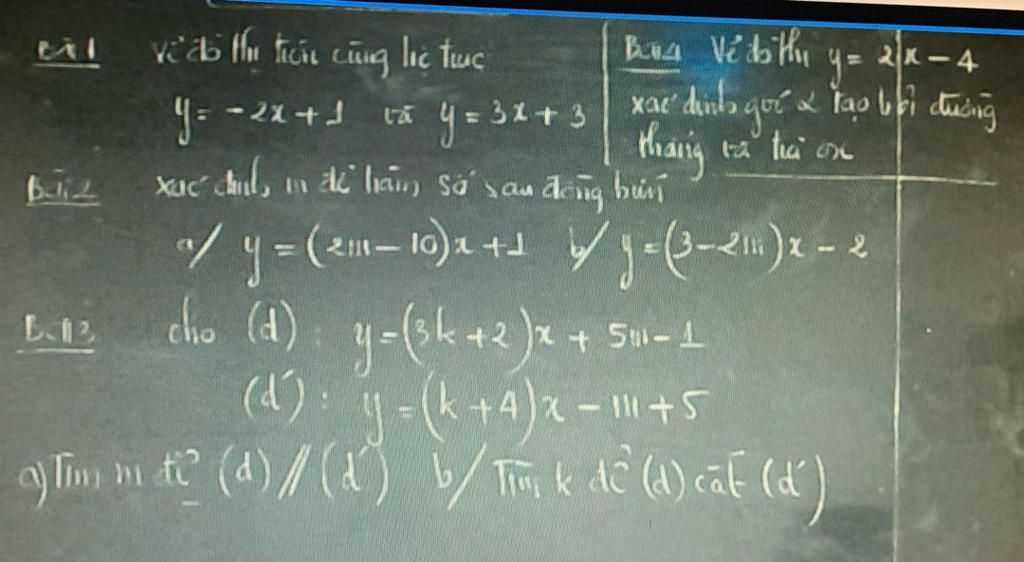 Bài 1 vẽ đồ thị trên cùng hệ trục
y = -2x + 1 và y = 3x + 3
Bài 4 Vẽ đồ thị y = 2x - 4
xác định góc α tạo bởi đường
thẳng và trục ox
Bài 2 xác định m để hàm số sau đồng biến
a/ y = (2m - 10)x + 1 b/ y = (3 - 2m)x - 2
Bài 3 cho (d) : y = (3k + 2)x + 5m - 1
(d') : y = (k + 4)x - m + 5
a) Tìm m để (d) // (d') b/ Tìm k để (d) cắt (d')